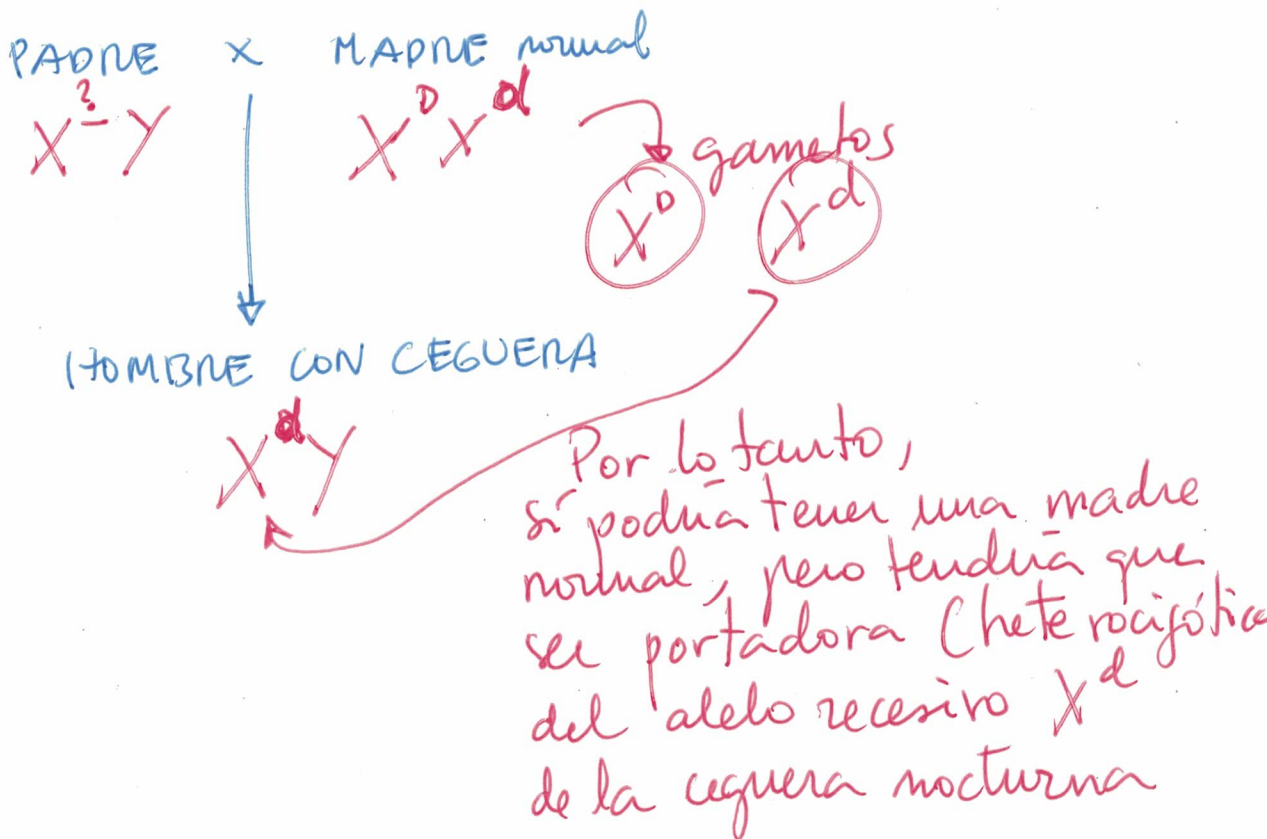 PADRE x MADRE normal
X^? Y X^D X^d
gametos
X^D X^d
HOMBRE CON CEGUERA
X^d Y
Por lo tanto,
sí podría tener una madre
normal, pero tendría que
ser portadora (heterocigótica
del alelo recesivo X^d
de la ceguera nocturna